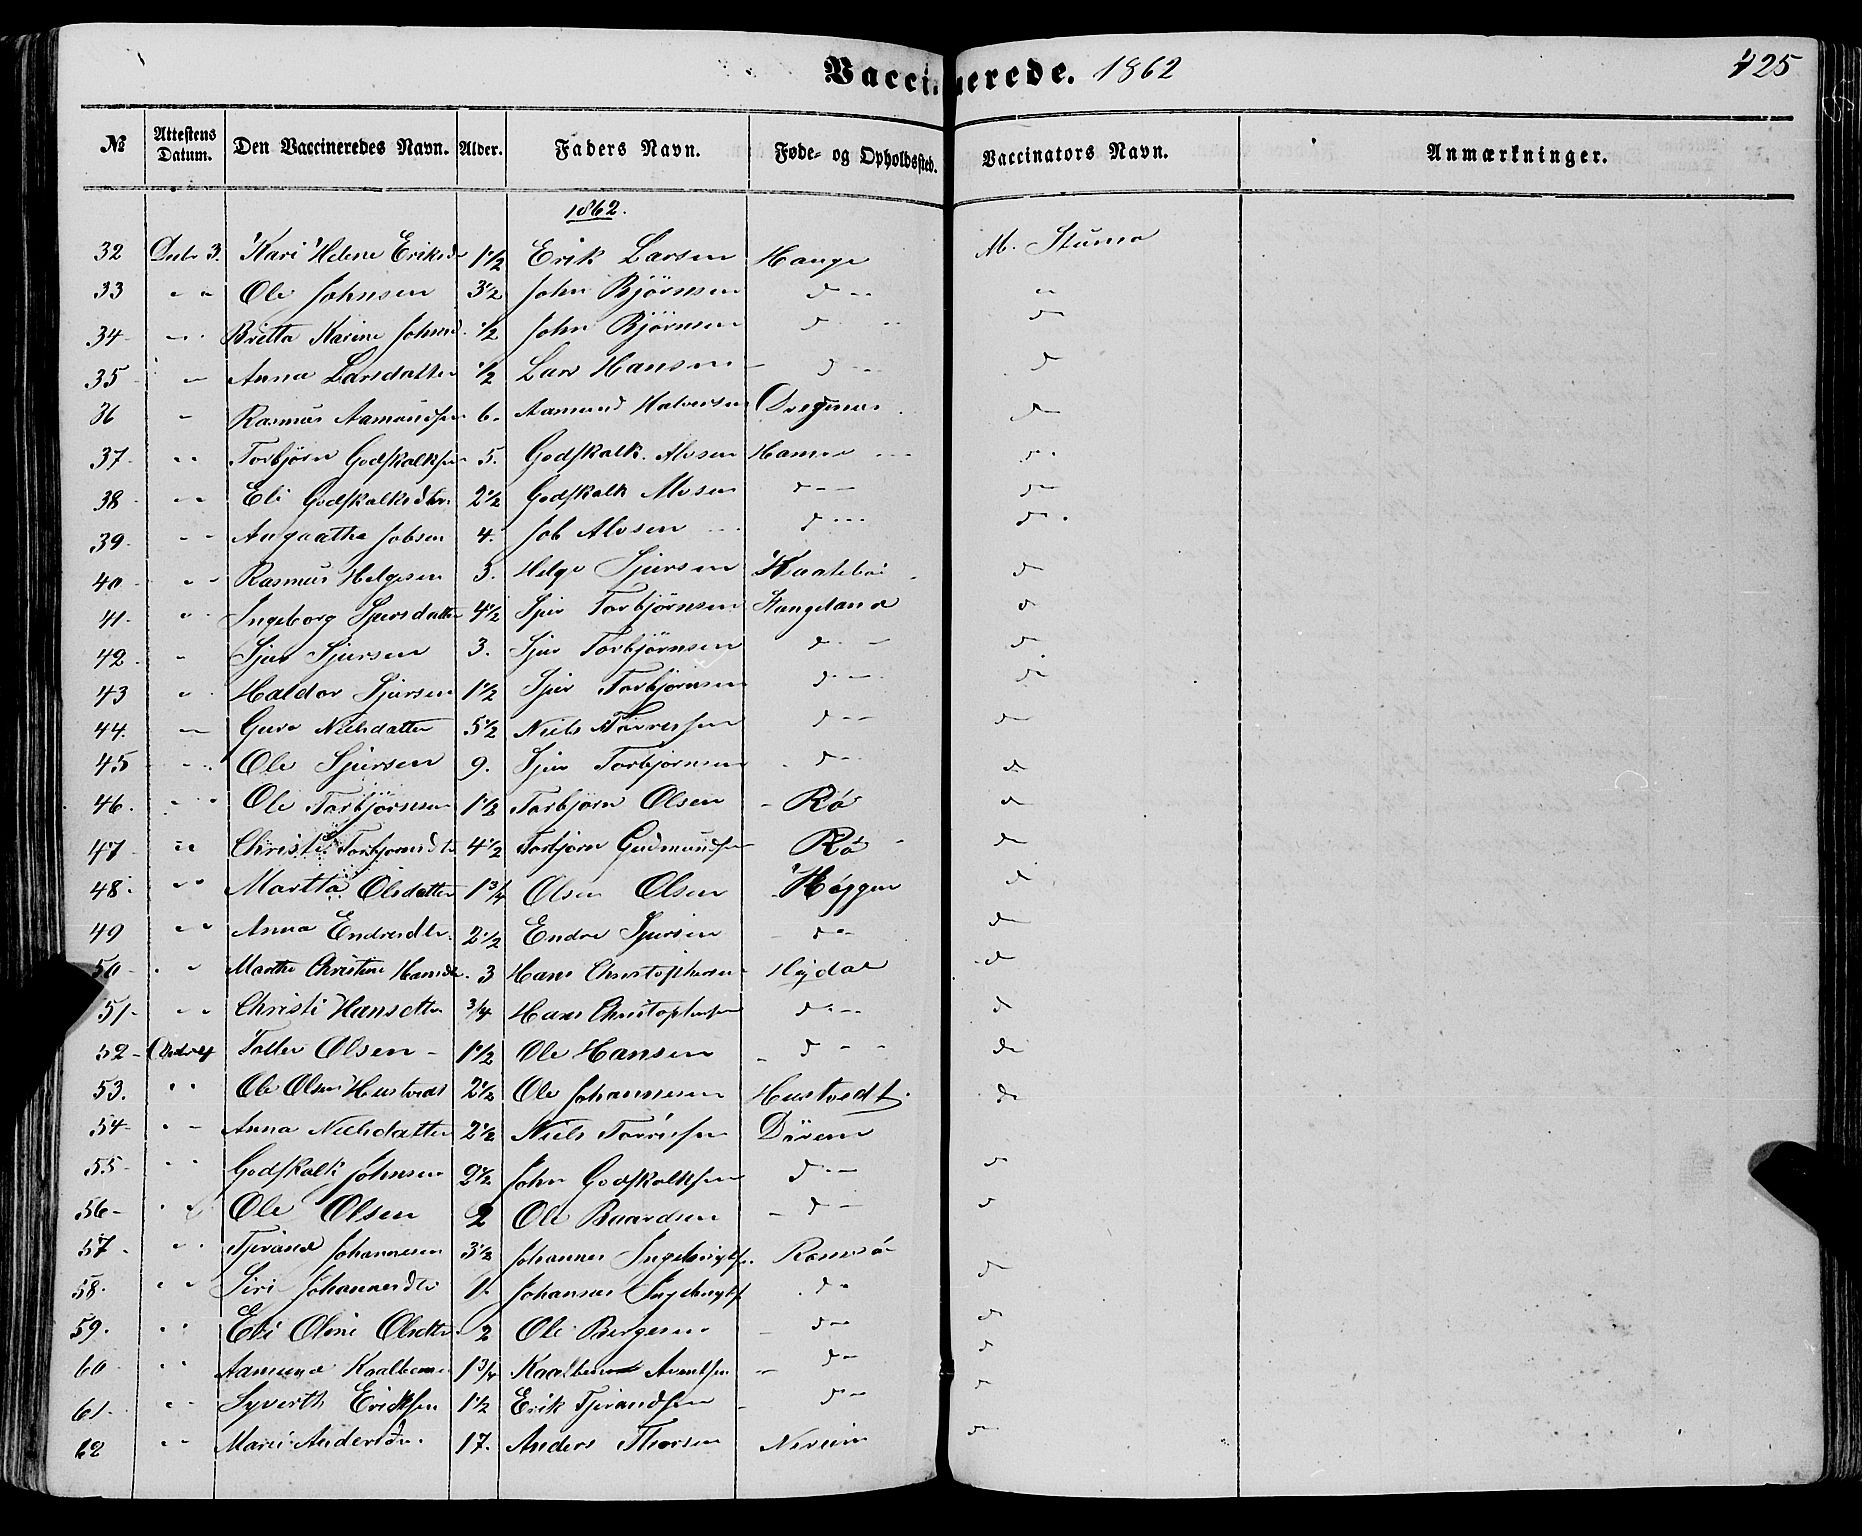 Vaccinerede. 1862
425
№ Attestens Datum. Den Vaccineredes Navn. Alder. Faders Navn. Føde- og Opholdssted. Vaccinators Navn. Anmærkninger.
1862.
32 3. Kari Helene Eriksd 1 1/2 Erik Larsen Hauge M. Stumo
33 " " Ole Johnsen 3 1/2 John Bjørnsen d "
34 " " Britta Karine Johnsd 1/2 John Bjørnsen d d
35 " Anna Larsdatter 1/2 Lars Hansen d d
36 " Rasmus Aamundsen 6. Aamund Halvorsen d
37 " " Torbjørn Godskalksen 5. Godskalk Alvsen Hamre d
38 " " Eli Godskalksdtr 2 1/2 Godskalk Alvsen d d
39 " " Angaatha Jobsen 4. Job Alvsen d d
40 " " Rasmus Helgesen 5. Helge Sjursen d
41 " " Ingeborg Sjursdatter 4 1/2 Sjur Torbjørnsen Hangeland d
42 " Sjur Sjursen 3. Sjur Torbjørnsen d d
43 " Haldor Sjursen 1 1/2 Sjur Torbjørnsen d d
44. " Guro Nielsdatter 5 1/2 Niels Tørressen d d
45 " Ole Sjursen 9. Sjur Torbjørnsen d d
46. " " Ole Torbjørnsen 1 1/2 Torbjørn Olsen Rø d
47 " " Christi Torbjørnsdtr 4 1/2 Torbjørn Gudmundsen Rø d
48. " " Martha Olsdatter 1 3/4 Olsen Olsen d
49 " " Anna Endresdtr. 2 1/2 Endre Sjursen d d
50 " " Marthe Christine Hansdr. 3 Hans Christophersen d
51 " " Christi Hansdtr 3/4 Hans Christophersen d d
52 Olsen 1 1/2 Ole Hansen d d
53. " " Ole Olsen Hustvedt 2 1/2 Ole Johannesen Hustvedt. d
54 " " Anna Nielsdatter 2 1/2 Niels
55 " " Godskalk Johnsen 2 1/2 John Godskalksen d d
56 " Ole Olsen 2 Ole Baardsen d d
57 " " Tjerand Johannesen 3 1/2 Johannes Ingebrigts. Ramsø
58. " " Siri Johannesdtr 1. Johannes Ingebrigts d d
59. " " Eli Oline Olsdtr 2 Ole Børgesen d d
60 " " Aamund 1 3/4 d d
61 " " Syverth Eriksen 1 1/2 Erik Tjerandsen d d
62 " " 17. Anders Thorsen d